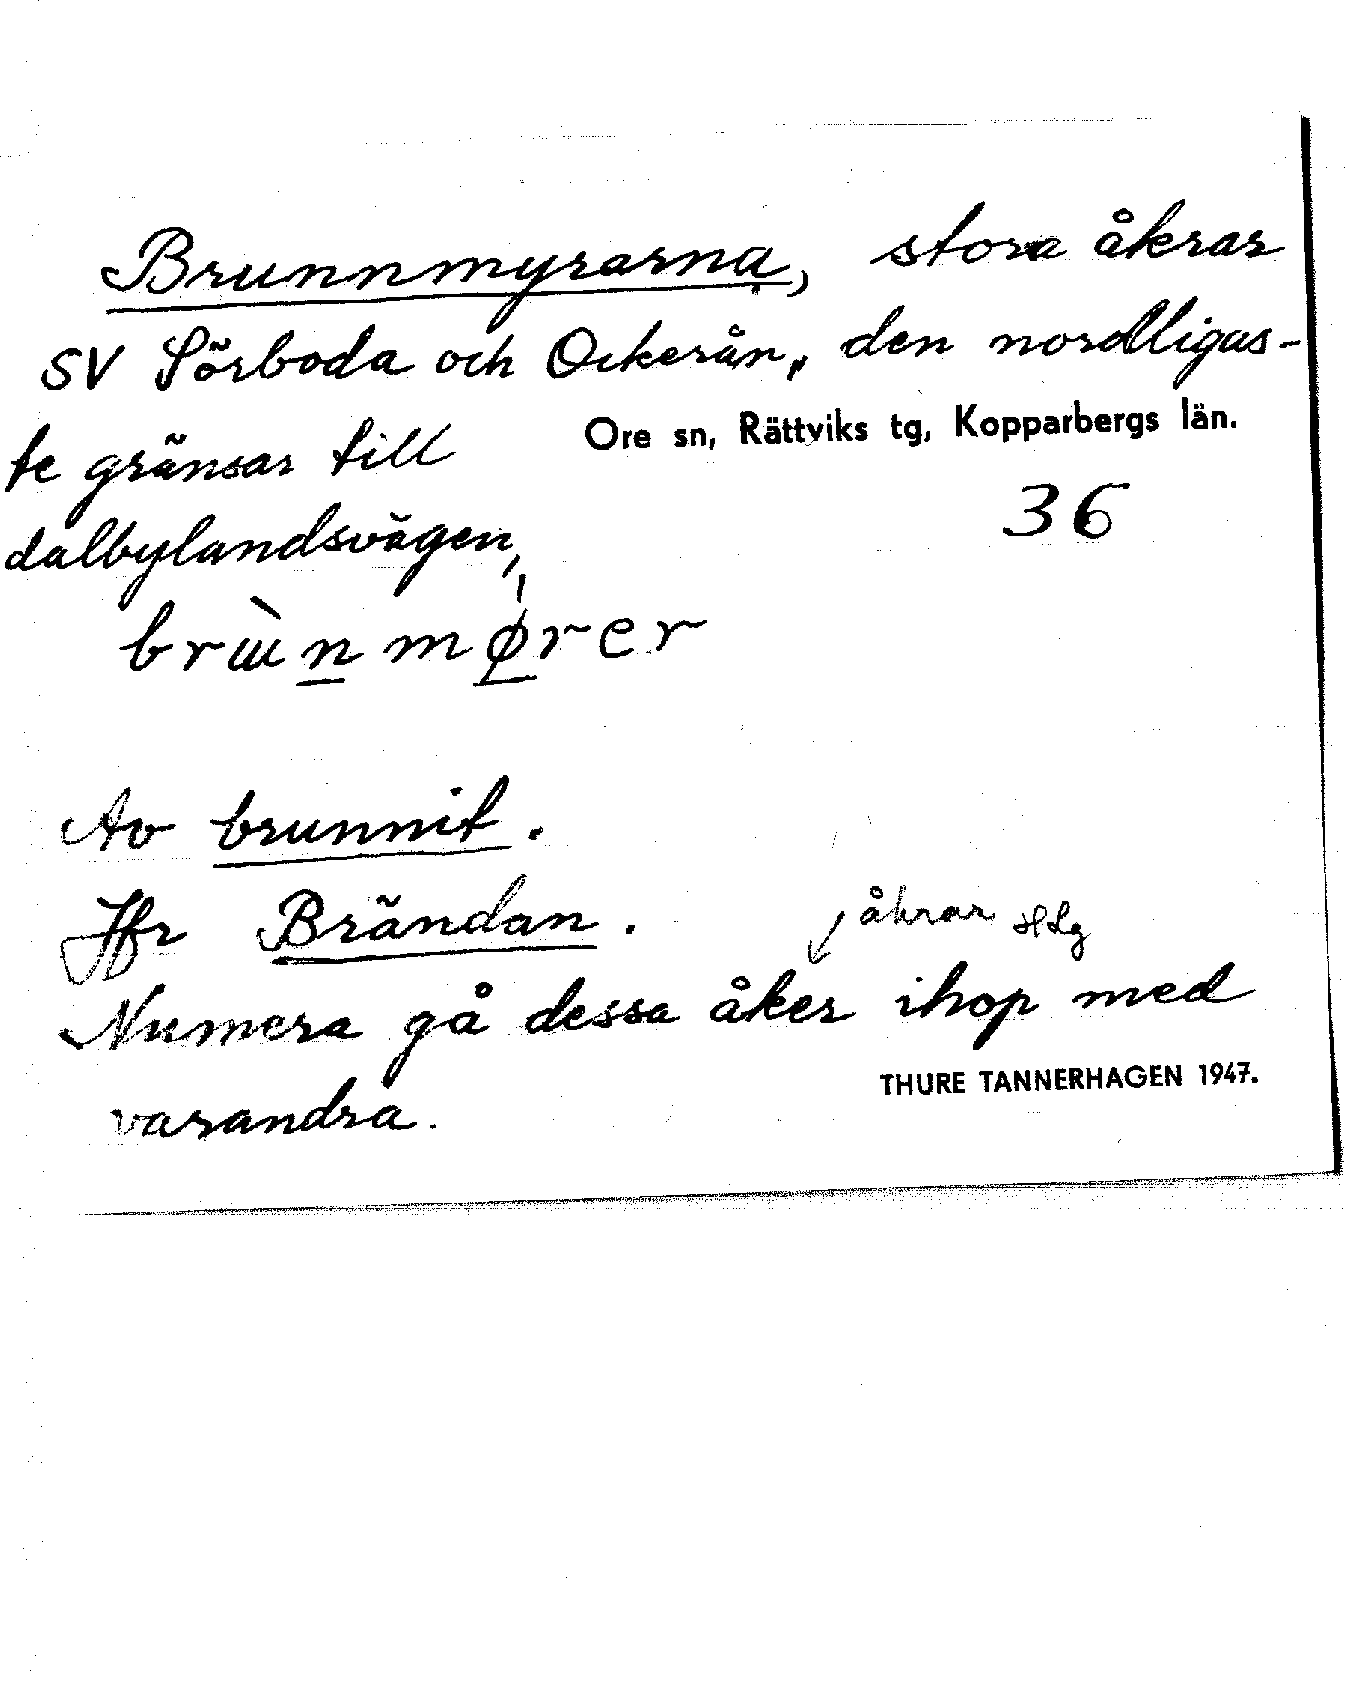 Brunnmyrarna, stora åkrar
SV Sörboda och Ockerån, den nordligas-
te gränsar till
Ore sn, Rättviks tg, Kopparbergs län.
36
dalbylandsvägen,
Av brunnit.
Jfr Brändan.
åkrar
Numera gå dessa åker ihop med
varandra.
THURE TANNERHAGEN 1947.